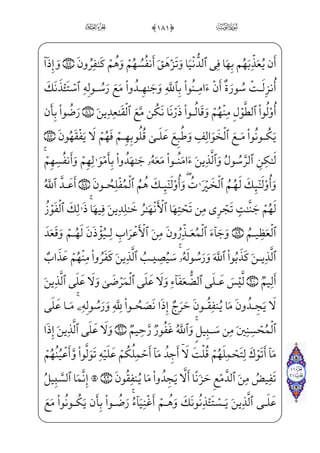 ﴿١٨١﴾
أَن يُعَذِّبَهُم بِهَا فِي ٱلدُّنْيَا وَتَزْهَقَ أَنفُسُهُمْ وَهُمْ كَٰفِرُونَ وَإِذَآ
أُنزِلَتْ سُورَةٌ أَنْ ءَامِنُوا۟ بِٱللَّهِ وَجَٰهِدُوا۟ مَعَ رَسُولِهِ ٱسْتَـْٔذَنَكَ
أُو۟لُوا۟ ٱلطَّوْلِ مِنْهُمْ وَقَالُوا۟ ذَرْنَا نَكُن مَّعَ ٱلْقَٰعِدِينَ رَضُوا۟ بِأَن
يَكُونُوا۟ مَعَ ٱلْخَوَالِفِ وَطُبِعَ عَلَىٰ قُلُوبِهِمْ فَهُمْ لَا يَفْقَهُونَ
لَٰكِنِ ٱلرَّسُولُ وَٱلَّذِينَ ءَامَنُوا۟ مَعَهُۥ جَٰهَدُوا۟ بِأَمْوَٰلِهِمْ وَأَنفُسِهِمْ ۚ
وَأُو۟لَٰٓئِكَ لَهُمُ ٱلْخَيْرَٰتُ ۖ وَأُو۟لَٰٓئِكَ هُمُ ٱلْمُفْلِحُونَ أَعَدَّ ٱللَّهُ
لَهُمْ جَنَّٰتٍ تَجْرِي مِن تَحْتِهَا ٱلْأَنْهَٰرُ خَٰلِدِينَ فِيهَا ۚ ذَٰلِكَ ٱلْفَوْزُ
ٱلْعَظِيمُ وَجَآءَ ٱلْمُعَذِّرُونَ مِنَ ٱلْأَعْرَابِ لِيُؤْذَنَ لَهُمْ وَقَعَدَ
ٱلَّذِينَ كَذَبُوا۟ ٱللَّهَ وَرَسُولَهُۥ ۚ سَيُصِيبُ ٱلَّذِينَ كَفَرُوا۟ مِنْهُمْ عَذَابٌ
أَلِيمٌ لَّيْسَ عَلَى ٱلضُّعَفَآءِ وَلَا عَلَى ٱلْمَرْضَىٰ وَلَا عَلَى ٱلَّذِينَ
لَا يَجِدُونَ مَا يُنفِقُونَ حَرَجٌ إِذَا نَصَحُوا۟ لِلَّهِ وَرَسُولِهِۦ ۚ مَا عَلَى
ٱلْمُحْسِنِينَ مِن سَبِيلٍ ۚ وَٱللَّهُ غَفُورٌ رَّحِيمٌ وَلَا عَلَى ٱلَّذِينَ إِذَا
مَآ أَتَوْكَ لِتَحْمِلَهُمْ قُلْتَ لَآ أَجِدُ مَآ أَحْمِلُكُمْ عَلَيْهِ تَوَلَّوا۟ وَّأَعْيُنُهُمْ
تَفِيضُ مِنَ ٱلدَّمْعِ حَزَنًا أَلَّا يَجِدُوا۟ مَا يُنفِقُونَ ۞ إِنَّمَا ٱلسَّبِيلُ
عَلَى ٱلَّذِينَ يَسْتَـْٔذِنُونَكَ وَهُمْ أَغْنِيَآءُ ۚ رَضُوا۟ بِأَن يَكُونُوا۟ مَعَ